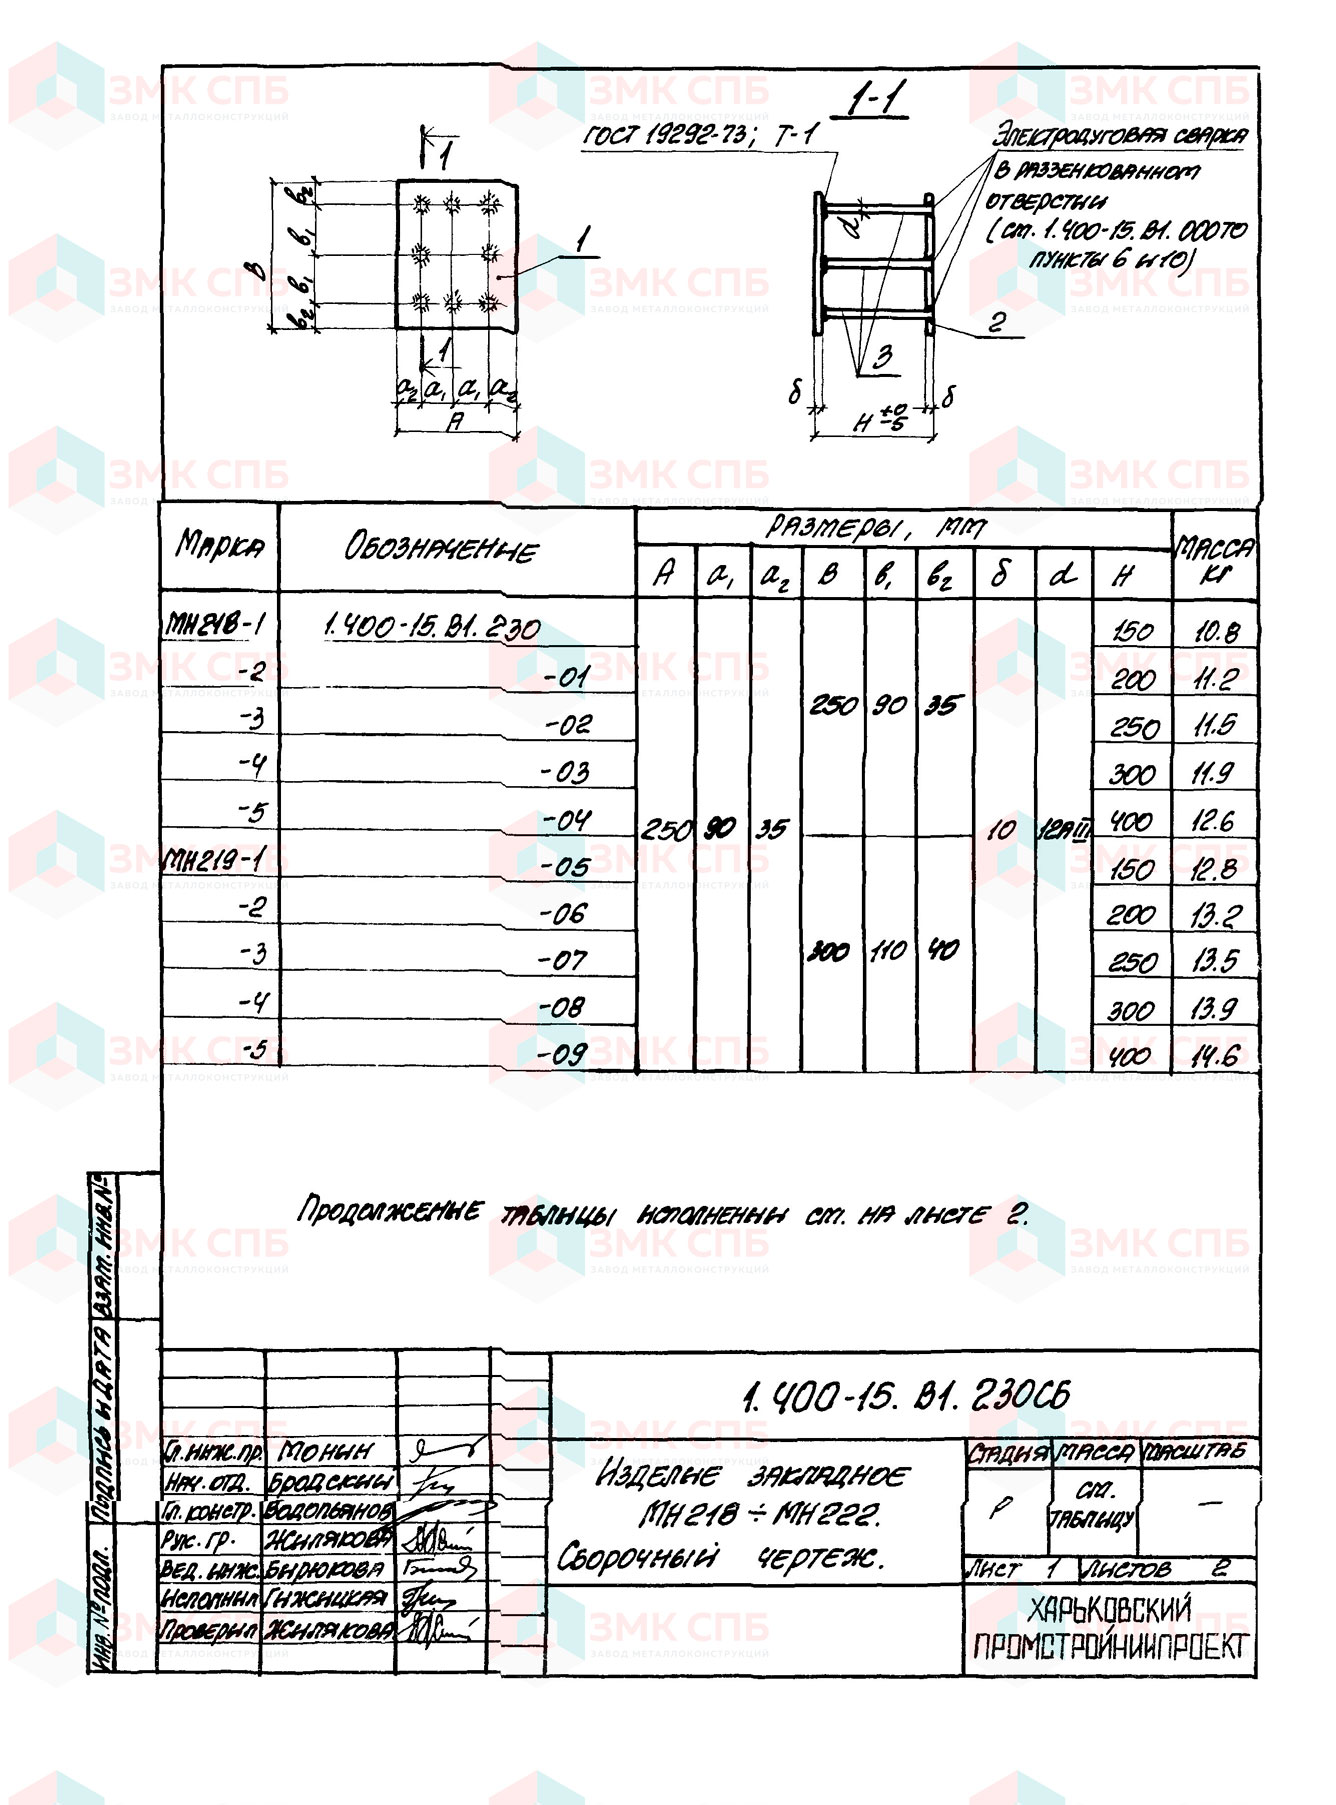 1-1
ГОСТ 19292-73; Т-1
Электродуговая сварка
в раззенкованном
отверстии
(см. 1.400-15.В1.000ТО
пункты 6 и 10)
1
1
1
2
3
d
В
в₂
в₁
в₁
в₂
а₂ а₁ а₁ а₂
А
δ
δ
Н +0 -5
Марка Обозначение Размеры, мм Масса кг
А а₁ а₂ В в₁ в₂ δ d Н
МН218-1 1.400-15.В1.230 150 10.8
-2 -01 200 11.2
250 90 35
-3 -02 250 11.5
-4 -03 300 11.9
-5 -04 400 12.6
250 90 35 10 12АIII
МН219-1 -05 150 12.8
-2 -06 200 13.2
300 110 40
-3 -07 250 13.5
-4 -08 300 13.9
-5 -09 400 14.6
Продолжение таблицы исполнении см. на листе 2.
Взам. инв.№
Подпись и дата
Инв. № подл.
1.400-15.В1.230СБ
Гл. инж. пр. Монин
Нач. отд. Бродский
Гл. констр. Водопьянов
Рук. гр. Жилякова
Вед. инж. Бирюкова
Исполнил Гижицкая
Проверил Жилякова
Изделие закладное
МН218÷МН222.
Сборочный чертеж.
Стадия Масса Масштаб
Р см. таблицу —
Лист 1 Листов 2
ХАРЬКОВСКИЙ
ПРОМСТРОЙНИИПРОЕКТ
ЗМК СПБ
ЗАВОД МЕТАЛЛОКОНСТРУКЦИЙ